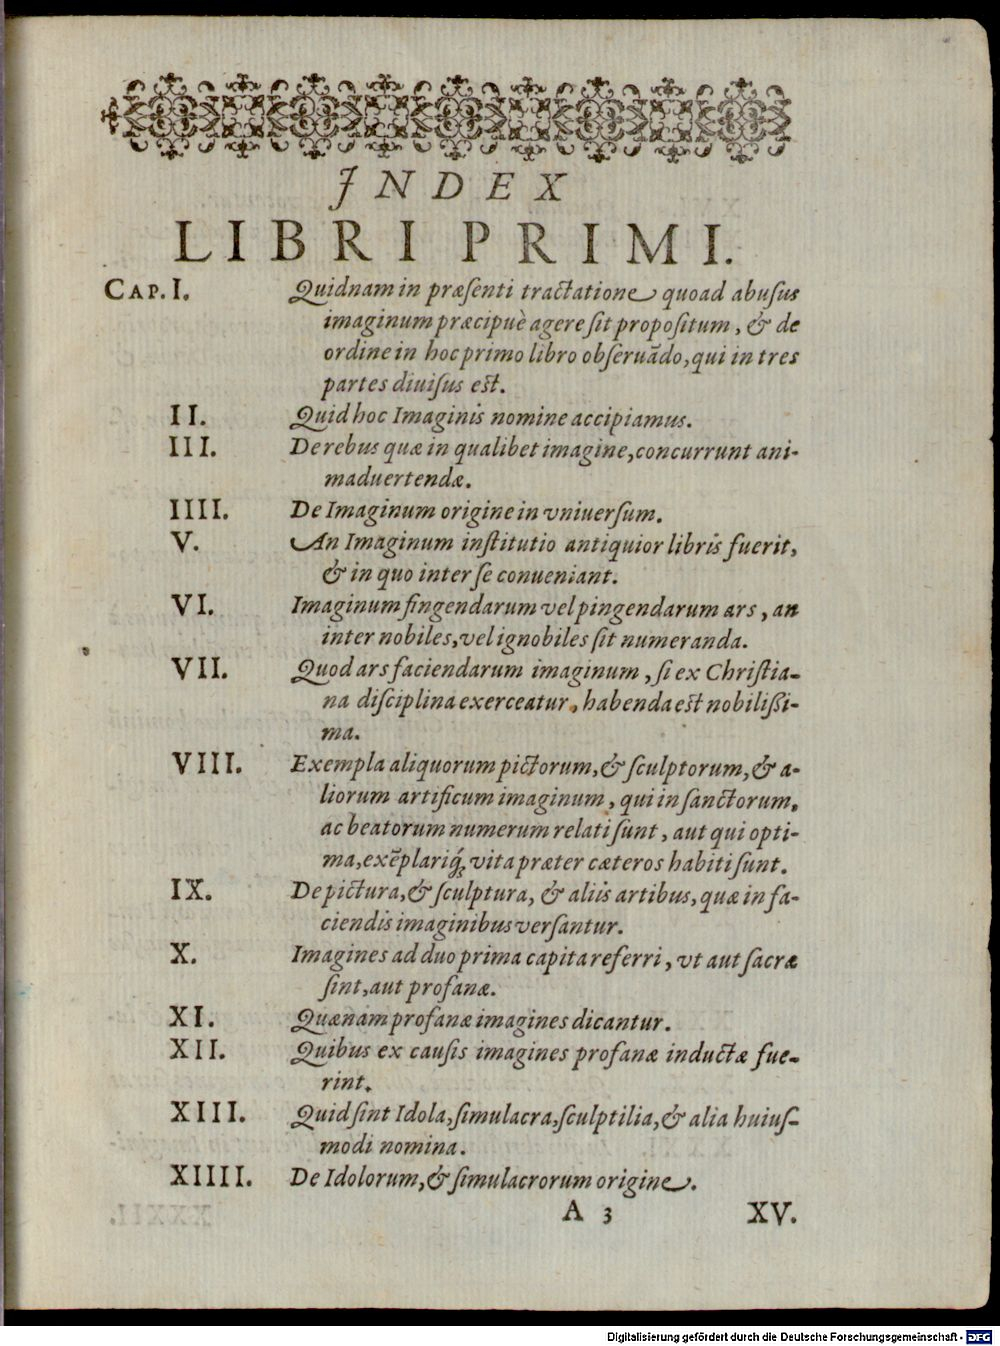 INDEX
LIBRI PRIMI.
CAP. I. Quidnam in præſenti tractatione quoad abuſus
imaginum præcipuè agere ſit propoſitum, & de
ordine in hoc primo libro obſeruãdo, qui in tres
partes diuiſus est.
II. Quid hoc Imaginis nomine accipiamus.
III. De rebus quæ in qualibet imagine, concurrunt ani-
maduertendæ.
IIII. De Imaginum origine in vniuerſum.
V. An Imaginum inſtitutio antiquior libris fuerit,
& in quo inter ſe conueniant.
VI. Imaginum fingendarum vel pingendarum ars, an
inter nobiles, vel ignobiles ſit numeranda.
VII. Quod ars faciendarum imaginum, ſi ex Chriſtia-
na diſciplina exerceatur, habenda est nobilißi-
ma.
VIII. Exempla aliquorum pictorum, & ſculptorum, & a-
liorum artificum imaginum, qui in ſanctorum,
ac beatorum numerum relati ſunt, aut qui opti-
ma, exẽplariq́; vita præter cæteros habiti ſunt.
IX. De pictura, & ſculptura, & aliis artibus, quæ in fa-
ciendis imaginibus verſantur.
X. Imagines ad duo prima capita referri, vt aut ſacræ
ſint, aut profanæ.
XI. Quænam profanæ imagines dicantur.
XII. Quibus ex cauſis imagines profanæ inductæ fue-
rint.
XIII. Quid ſint Idola, ſimulacra, ſculptilia, & alia huiuſ-
modi nomina.
XIIII. De Idolorum, & ſimulacrorum origine.
A 3 XV.
Digitalisierung gefördert durch die Deutsche Forschungsgemeinschaft - DFG